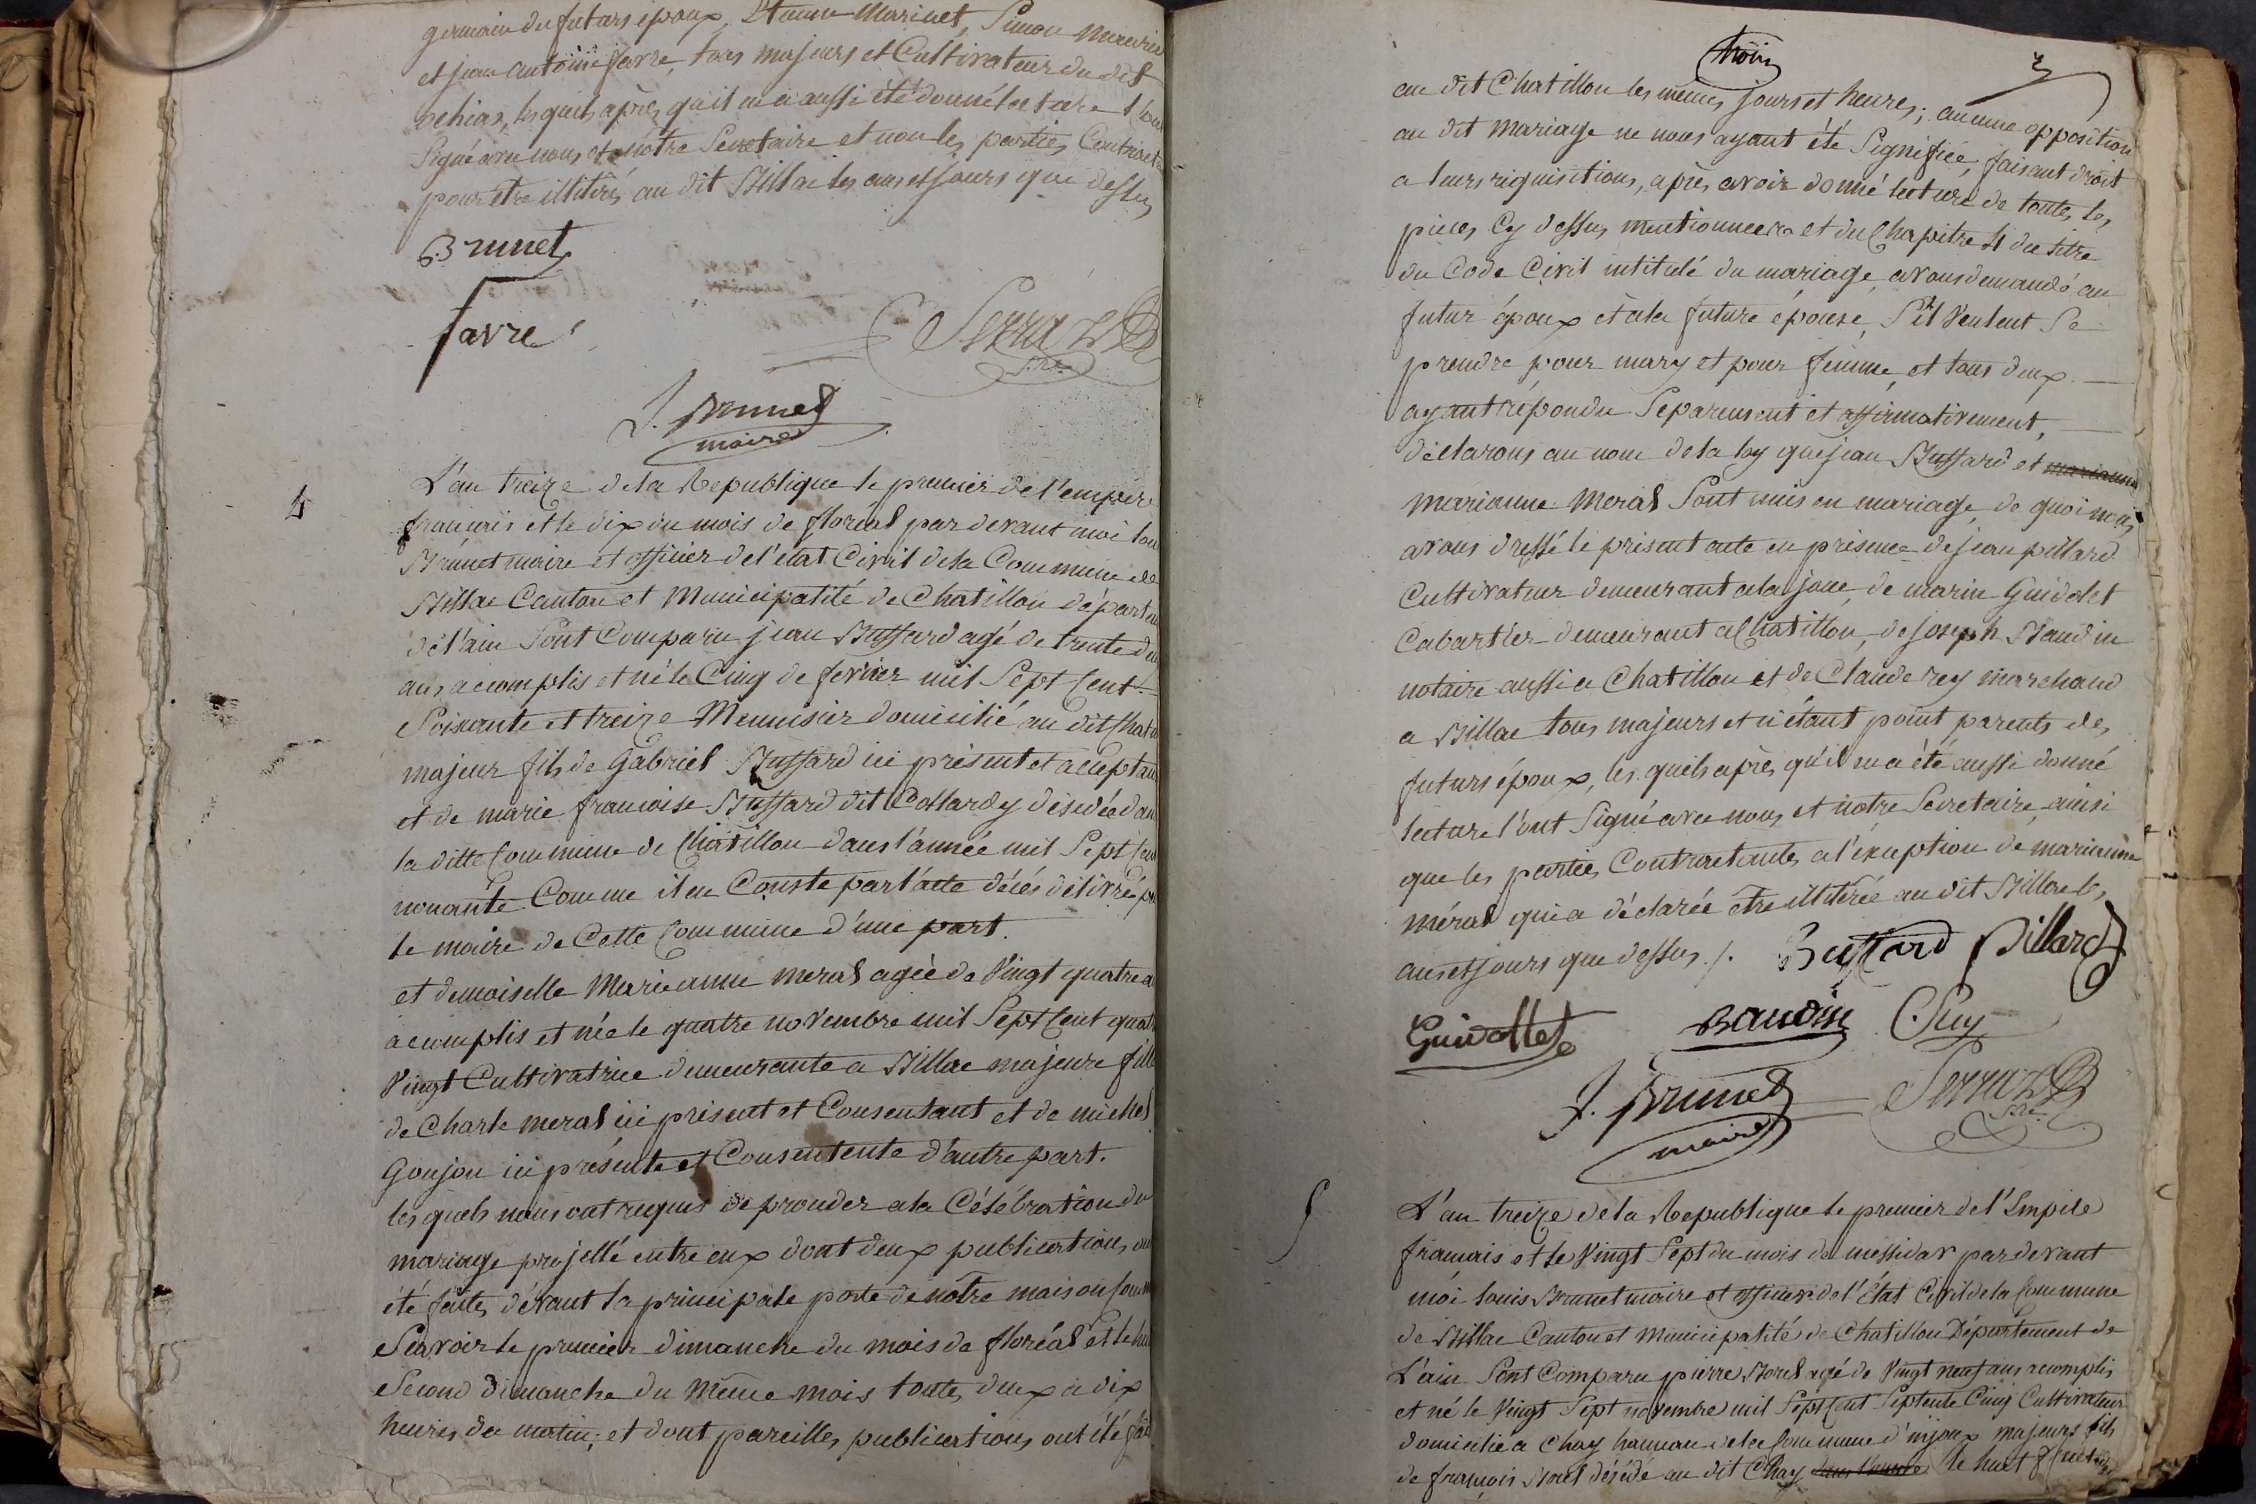 germain du futurs époux, Etienne Marinet, Simon
et jean antoine favre, tous majeurs et Cultivateur du dit
les quels après qu'il en a aussi été donné lecture l'ont
Signé avec nous et notre Secretaire et non les parties Contract
pour etre illitérés au dit Billac les ans et jours que dessus
Brunet
favre
Serraz
S.re
J. Brunet
maire
4
L'an treize de la Republique le premier de l'empire
français et le dix du mois de floreal par devant moi lou
Brunet maire et officier de l'état Civil de la Commune de
Billac Canton et Municipalité de Chatillon départem
de l'ain Sont Comparu jean Buffard agé de trente deu
ans acomplis et né le Cinq de fevrier mil Sept Cent
Soixante et treize Menuisier domicilié au dit Chati
majeur fils de Gabriel Buffard ici présent et aceptant
et de marie francoise Buffard dit Collardy désedée dan
la ditte Commune de Chatillon dans l'année mil Sept Cen
nonante Comme il en Conste par l'acte décés délivré pa
le maire de Cette Commune d'une part.
et demoiselle Marieanne meral agée de Vingt quatre a
acomplis et née le quatre novembre mil Sept Cent quat
Vingt Cultivatrice demeurante a Billac majeure fille
de Charle meral ici présent et Consentant et de michel
Goujon ici présente et Consentente d'autre part.
les quels nous ont requis de proceder a la Célébration du
mariage projetté entre eux dont deux publications on
été faites dévant la principale porte de notre maison Comm
Savoir le premier dimanche du mois de floréal et le
Second dimanche du Même mois toutes deux a dix
heures du matin; et dont pareilles publications ont été fait
trois
3
au dit Chatillon les mêmes jours et heures; aucune opposition
au dit mariage ne nous ayant été Signifiée, faisant droit
a leurs riquisitions, après avoir donné lecture de toutes les
pieces Cy dessus mentionnees et du Chapitre 4 du titre
du Code Civil intitulé du mariage, avons demandé au
futur époux et a la future épouse, S'il Veulent Se
prendre pour mary et pour femme, et tous deux
ayant répondu Separement et affirmativement,
déclarons au nom de la loy que jean Buffard et marianne
marianne Meral Sont unis en mariage, de quoi nous
avons dressé le présent acte en présence de jean pillard
Cultivateur demeurant a la joux, de marin Guidolet
Cabartier demeurant a Chatillon, de joseph Baudin
notaire aussi a Chatillon et de Claude rey marchand
a Billac tous majeurs et n'étant point parents des
futurs époux, les quels après qu'il en a été aussi donné
lecture l'ont Signé avec nous et notre Secretaire, ainsi
que les parties Contractantes a l'éxeption de marianne
méral qui a déclarée être illitérée au dit Billac les
ans et jours que dessus ./. Buffard Pillard
Guidollet Baudin C. Rey
J. Brunet Serraz
maire S.re
5
L'an treize de la Republique le premier de l'Empire
français et le Vingt Sept du mois de messidor par devant
moi louis Brunet maire et officier de l'État Civil de la Commune
de Billac Canton et Municipalité de Chatillon Département de
L'ain Sont Comparu pierre Borel agé de Vingt neuf ans acomplis
et né le Vingt Sept novembre mil Sept Cent Septente Cinq Cultivateur
domicilié a Chay hameau de la Commune d'injoux majeurs fils
de françois Borel désédé au dit Chay le huit